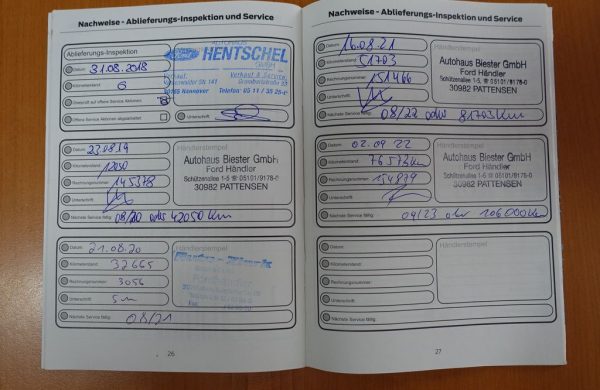 Nachweise - Ablieferungs-Inspektion und Service
Ablieferungs-Inspektion
Datum: 31.08.2018
Kilometerstand: 6
Überprüft auf offene Service Aktionen
Offene Service Aktionen abgearbeitet
Unterschrift:
AUTOHAUS
HENTSCHEL
GMBH
Verkauf & Service
Hannover
Telefon: 05 11 /
Datum: 23.08.19
Kilometerstand: 12050
Rechnungsnummer: 145378
Unterschrift:
Nächste Service fällig: 08/20 oder 42050 Km
Händlerstempel
Autohaus Biester GmbH
Ford Händler
Schützenallee 1-5, ☎ 05101/9178-0
30982 PATTENSEN
Datum: 21.08.20
Kilometerstand: 32665
Rechnungsnummer: 3056
Unterschrift:
Nächste Service fällig: 08/21
Händlerstempel
26
Nachweise - Ablieferungs-Inspektion und Service
Datum: 16.08.21
Kilometerstand: 51703
Rechnungsnummer: 151466
Unterschrift:
Nächste Service fällig: 08/22 oder 81703 Km
Händlerstempel
Autohaus Biester GmbH
Ford Händler
Schützenallee 1-5, ☎ 05101/9178-0
30982 PATTENSEN
Datum: 02.09.22
Kilometerstand: 76573 Km
Rechnungsnummer:
Unterschrift:
Nächste Service fällig: 09/23 oder 106000 Km
Händlerstempel
Autohaus Biester GmbH
Ford Händler
Schützenallee 1-5 ☎ 05101/9178-0
30982 PATTENSEN
Datum:
Kilometerstand:
Rechnungsnummer:
Unterschrift:
Nächste Service fällig:
Händlerstempel
27